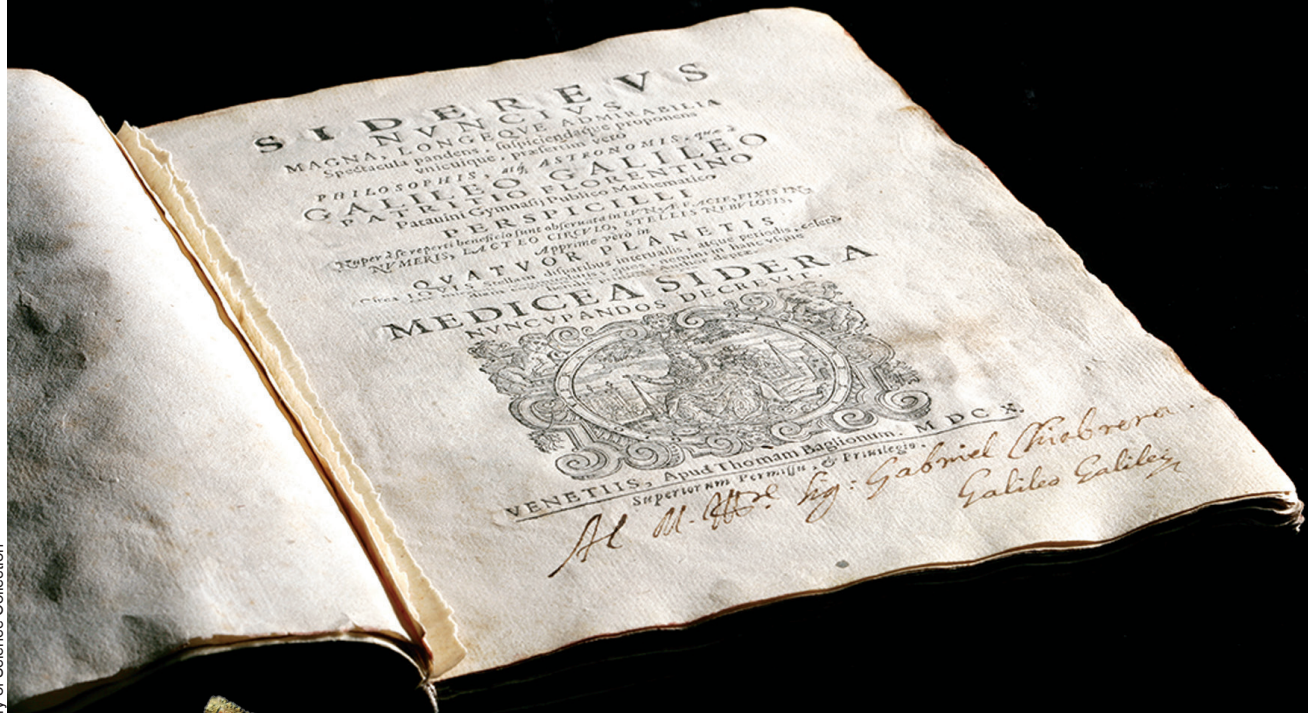 SIDEREVS
NVNCIVS
MAGNA, LONGEQVE ADMIRABILIA
Spectacula pandens, suspiciendaque proponens
vnicuique, præsertim verò
PHILOSOPHIS, atq; ASTRONOMIS, quæ à
GALILEO GALILEO
PATRITIO FLORENTINO
Patauini Gymnasij Publico Mathematico
PERSPICILLI
Nuper à se reperti beneficio sunt obseruata in LVNÆ FACIE, FIXIS IN-
NVMERIS, LACTEO CIRCVLO, STELLIS NEBVLOSIS,
Apprime verò in
QVATVOR PLANETIS
Circa IOVIS Stellam disparibus interuallis, atque periodis, celeri-
nemini in hanc vsque
MEDICEA SIDERA
NVNCVPANDOS DECREVIT.
VENETIIS, Apud Thomam Baglionum. MDCX.
Superiorum Permissu, & Priuilegio.
Al Sig: Gabriel Chiabrera.
Galileo Galilei
ry of Science Collection